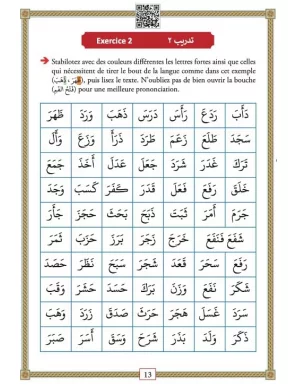 Exercice 2 تدريب ٢
Stabilotez avec des couleurs différentes les lettres fortes ainsi que celles
qui nécessitent de tirer le bout de la langue comme dans cet exemple
(ظَهَرَ، ذَهَبَ), puis lisez le texte. N'oubliez pas de bien ouvrir la bouche
(فَتْحُ الفَمِ) pour une meilleure prononciation.
دَأَبَ رَدَعَ رَأَسَ دَرَسَ ذَهَبَ وَرَدَ ظَهَرَ
سَجَدَ طَلَعَ زَعَمَ طَرَدَ ذَرَأَ وَزَعَ وَأَلَ
تَرَكَ غَدَرَ نَشَرَ جَعَلَ عَدَلَ أَخَذَ جَمَعَ
خَلَقَ رَفَعَ فَعَلَ قَدَرَ كَفَرَ كَسَبَ وَجَدَ
حَرَمَ أَمَرَ ثَبَتَ ذَبَحَ بَحَثَ حَجَزَ جَأَرَ
شَفَعَ فَنَفَعَ خَرَجَ زَجَرَ بَرَزَ حَزَبَ ثَمَرَ
سَحَرَ قَعَدَ شَجَرَ سَبَحَ نَظَرَ حَصَدَ
شَكَرَ وَزَنَ بَرَكَ حَسَدَ حَشَرَ وَقَبَ
سَرَدَ غَسَلَ هَجَرَ صَدَقَ زَرَدَ وَهَبَ
ذَكَرَ وَلَدَ بَذَرَ شَرَحَ وَسَقَ أَسَرَ صَبَرَ
13